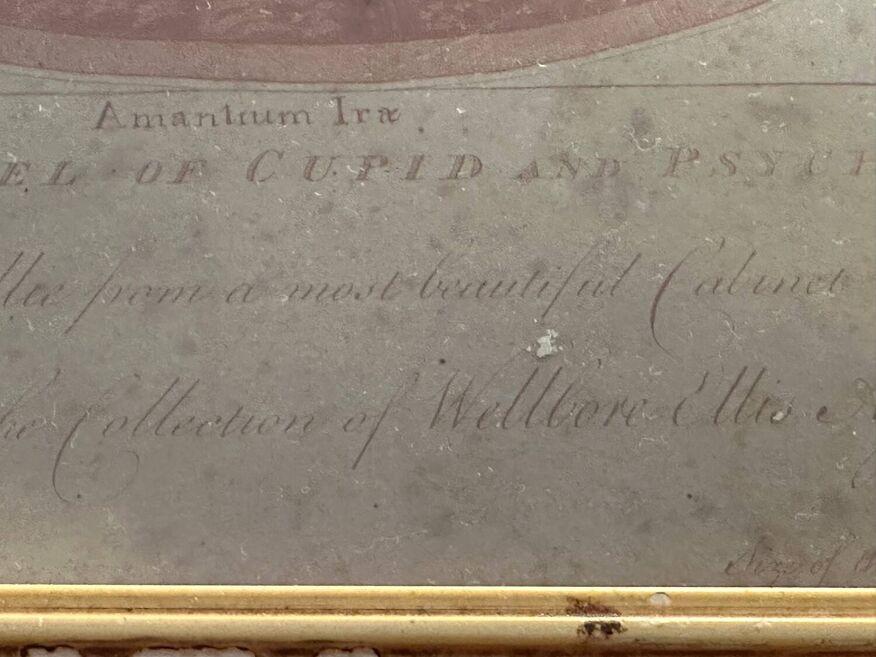 Amantium Iræ
EL OF CUPID AND PSYCH
llee from a most beautiful Cabinet
he Collection of Wellbore Ellis A
Size of